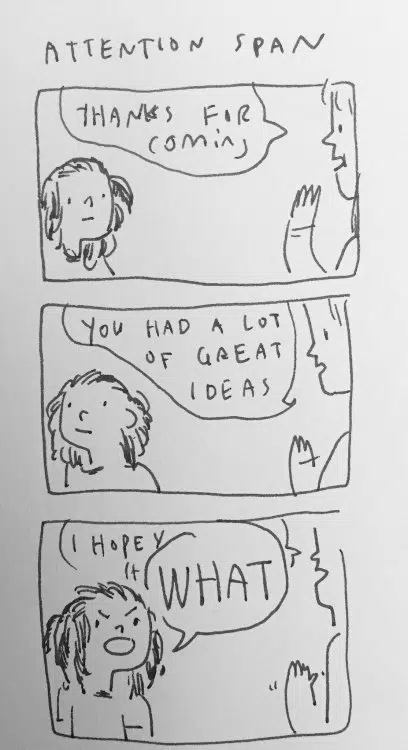 ATTENTION SPAN
THANKS FOR
COMiNG
YOU HAD A LOT
OF GREAT
IDEAS
I HOPE Y
IT
WHAT